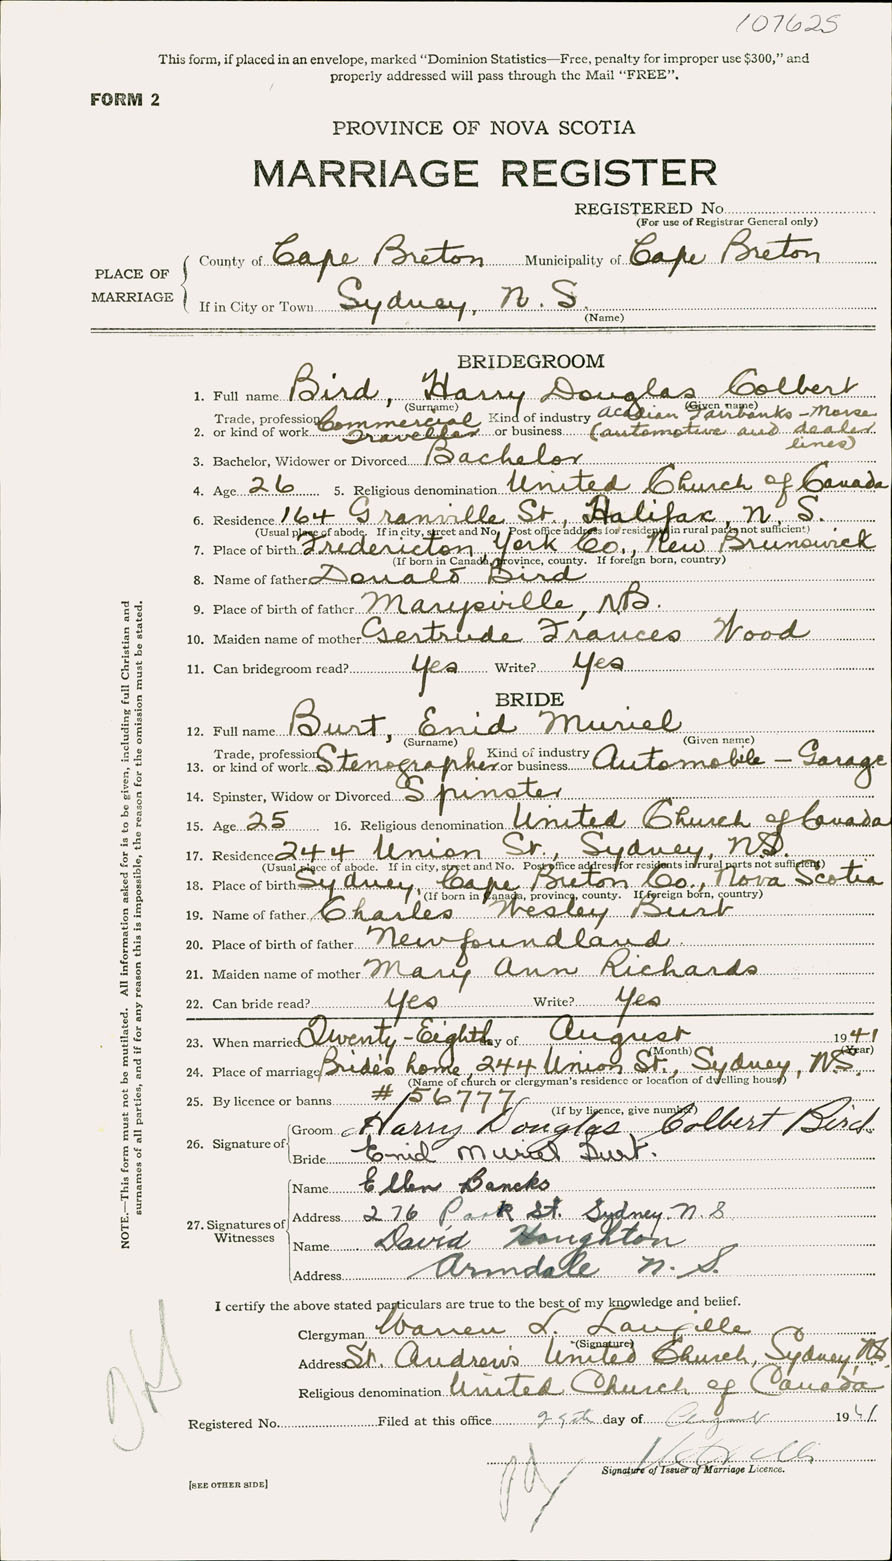 107625
This form, if placed in an envelope, marked “Dominion Statistics—Free, penalty for improper use $300,” and
properly addressed will pass through the Mail “FREE”.
FORM 2
PROVINCE OF NOVA SCOTIA
MARRIAGE REGISTER
REGISTERED No.
(For use of Registrar General only)
PLACE OF MARRIAGE
County of Cape Breton Municipality of Cape Breton
If in City or Town Sydney, N. S.
(Name)
BRIDEGROOM
1. Full name Bird, Harry Douglas Colbert
(Surname) (Given name)
2. Trade, profession or kind of work Commercial Traveller Kind of industry or business Acadian Fairbanks-Morse (automotive and dealer lines)
3. Bachelor, Widower or Divorced Bachelor
4. Age 26 5. Religious denomination United Church of Canada
6. Residence 164 Granville St., Halifax, N. S.
(Usual place of abode. If in city, street and No. Post office address for residents in rural parts not sufficient)
7. Place of birth Fredericton, York Co., New Brunswick
(If born in Canada, province, county. If foreign born, country)
8. Name of father Donald Bird
9. Place of birth of father Marysville, N.B.
10. Maiden name of mother Gertrude Frances Wood
11. Can bridegroom read? Yes Write? Yes
BRIDE
12. Full name Burt, Enid Muriel
(Surname) (Given name)
13. Trade, profession or kind of work Stenographer Kind of industry or business Automobile - Garage
14. Spinster, Widow or Divorced Spinster
15. Age 25 16. Religious denomination United Church of Canada
17. Residence 244 Union St., Sydney, N.S.
(Usual place of abode. If in city, street and No. Post office address for residents in rural parts not sufficient)
18. Place of birth Sydney, Cape Breton Co., Nova Scotia
(If born in Canada, province, county. If foreign born, country)
19. Name of father Charles Wesley Burt
20. Place of birth of father Newfoundland
21. Maiden name of mother Mary Ann Richards
22. Can bride read? Yes Write? Yes
23. When married Twenty-Eighth day of August 1941
(Month) (Year)
24. Place of marriage Bride's home, 244 Union St., Sydney, N.S.
(Name of church or clergyman's residence or location of dwelling house)
25. By licence or banns # 56777
(If by licence, give number)
26. Signature of
Groom Harry Douglas Colbert Bird
Bride Enid Muriel Burt.
27. Signatures of Witnesses
Name Ellen Bancks
Address 276 Park St. Sydney. N. S
Name David Houghton
Address Armdale N. S.
I certify the above stated particulars are true to the best of my knowledge and belief.
Clergyman Warren L. Langille
(Signature)
Address St. Andrew's United Church, Sydney, N.S.
Religious denomination United Church of Canada
Registered No. Filed at this office 29th day of August 1941
Signature of Issuer of Marriage Licence.
[SEE OTHER SIDE]
NOTE.—This form must not be mutilated. All information asked for is to be given, including full Christian and
surnames of all parties, and if for any reason this is impossible, the reason for the omission must be stated.